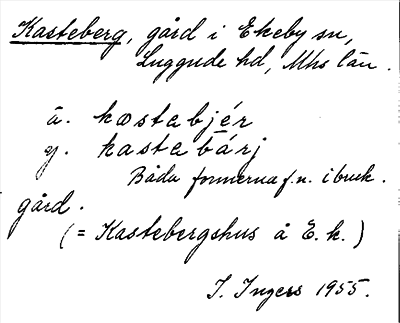 Kasteberg, gård i Ekeby sn,
Luggude hd, Mhs län.
ä. kastabjér
y. kastabārj
Båda formerna f.n. i bruk.
gård.
(= Kastebergshus å E.k.)
I. Ingers 1955.